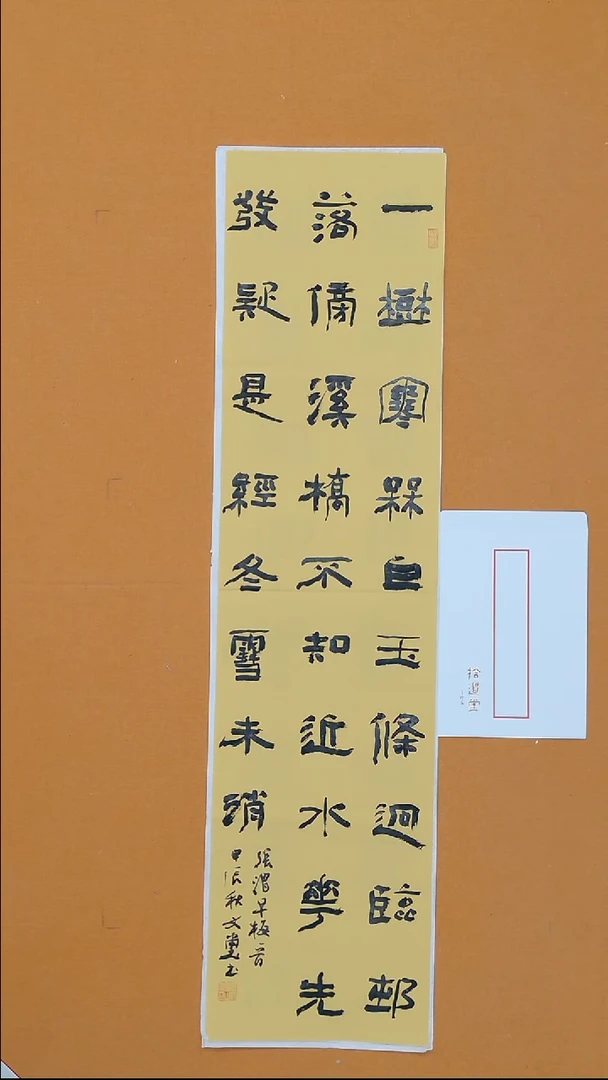 一樹寒槑白玉條迥臨邨
落傍溪橋不知近水華先
發疑是經冬雪未消
張渭早梅一首
甲辰秋文璽书